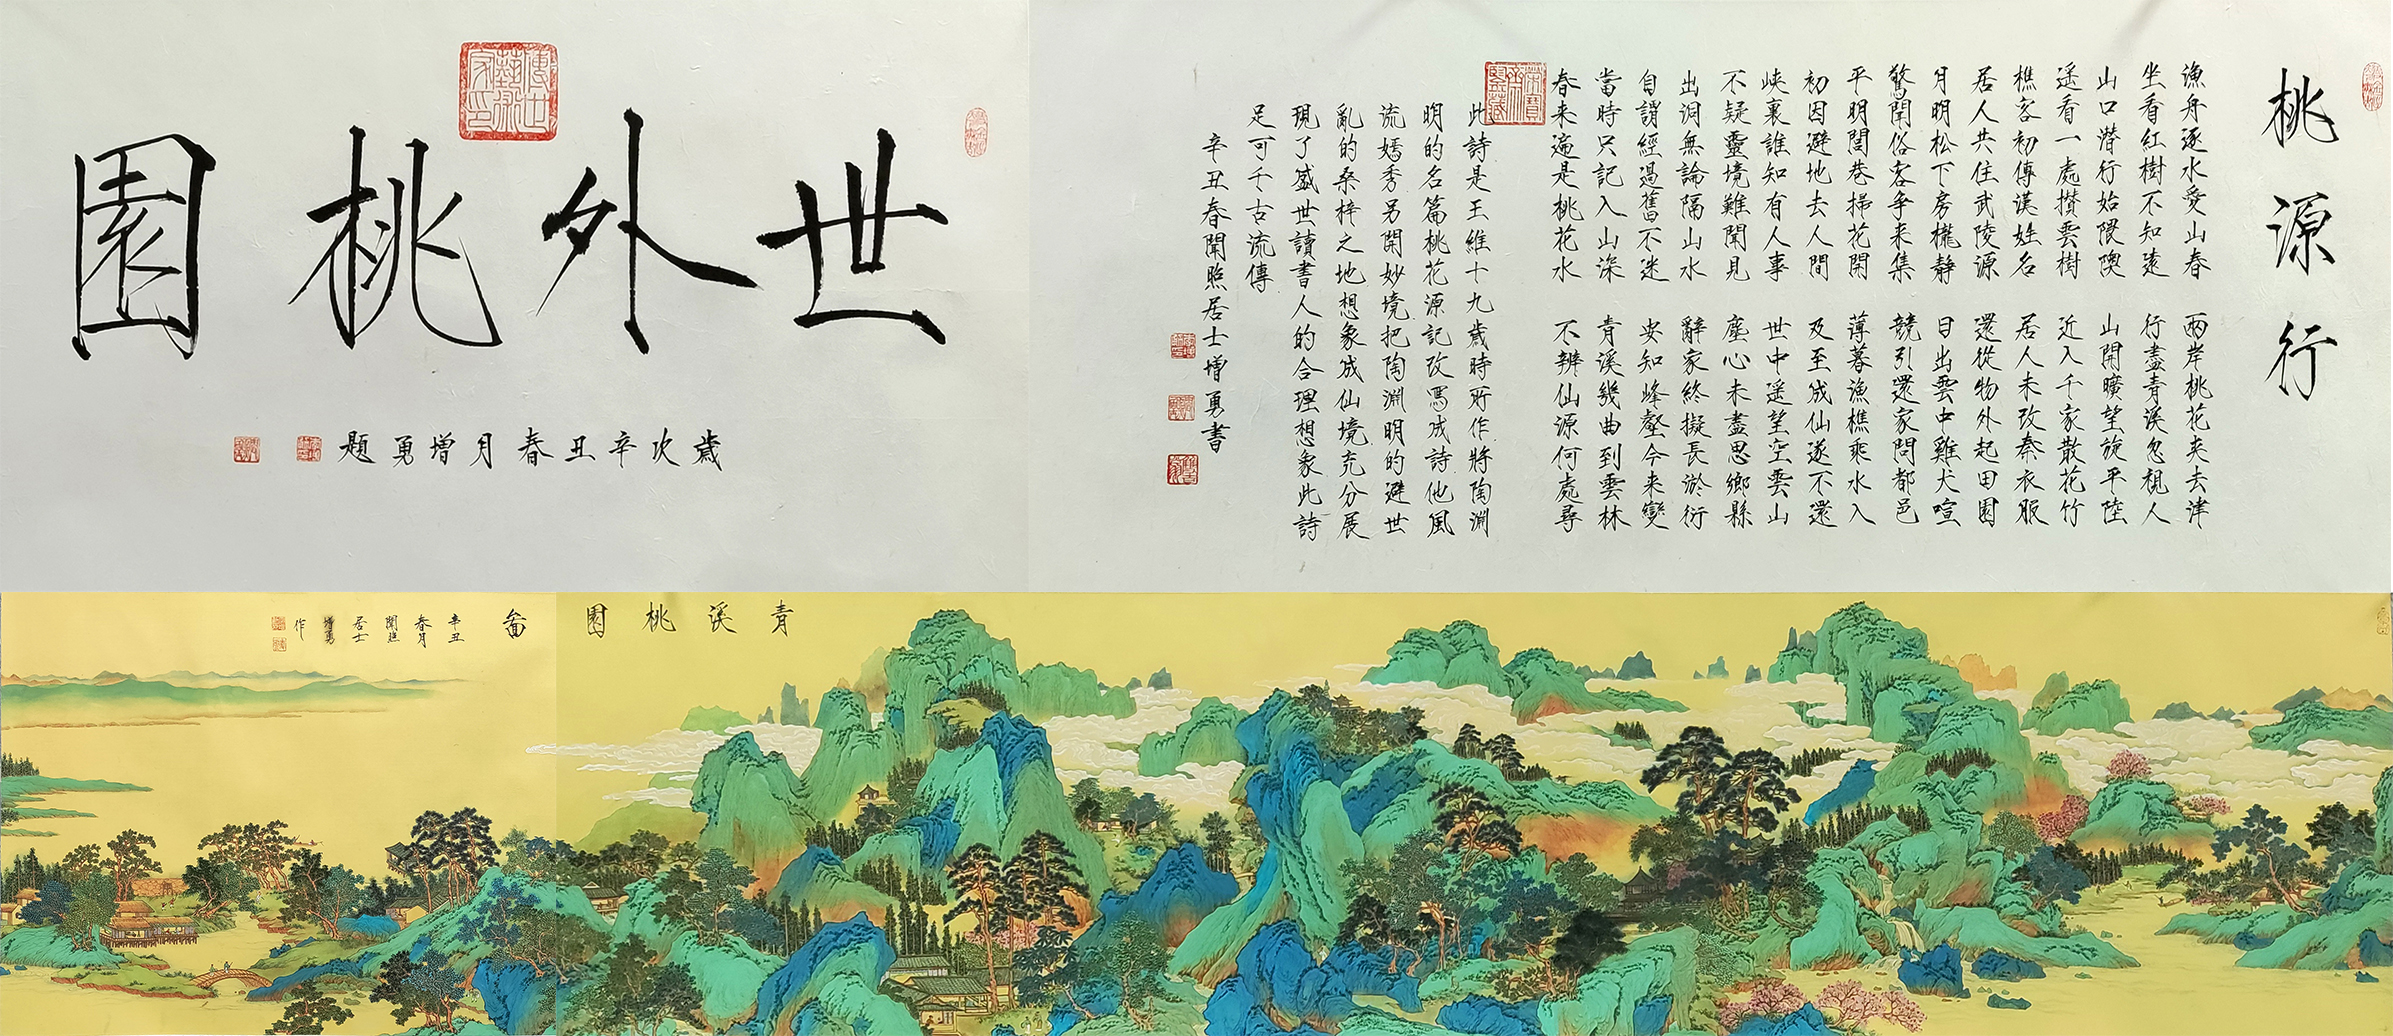 世外桃園
歲次辛丑春月增勇題
桃源行
漁舟逐水愛山春 兩岸桃花夾去津
坐看紅樹不知遠 行盡青溪忽視人
山口潛行始隈隩 山開曠望旋平陸
遥看一處攢雲樹 近入千家散花竹
樵客初傳漢姓名 居人未改秦衣服
居人共住武陵源 還從物外起田園
月明松下房櫳静 日出雲中雞犬喧
驚聞俗客爭来集 競引還家問都邑
平明閭巷掃花開 薄暮漁樵乘水入
初因避地去人間 及至成仙遂不還
峽裏誰知有人事 世中遥望空雲山
不疑靈境難聞見 塵心未盡思鄉縣
出洞無論隔山水 辭家終擬長游衍
自謂經過舊不迷 安知峰壑今来變
當時只記入山深 青溪幾曲到雲林
春来遍是桃花水 不辨仙源何處尋
此詩是王維十九歲時所作將陶淵
明的名篇桃花源記改寫成詩他風
流嫣秀另開妙境把陶淵明的避世
亂的桑梓之地想象成仙境充分展
現了盛世讀書人的合理想象此詩
足可千古流傳
辛丑春聞照居士增勇書
青溪桃園圖
辛丑
春月
聞照
居士
增勇
作